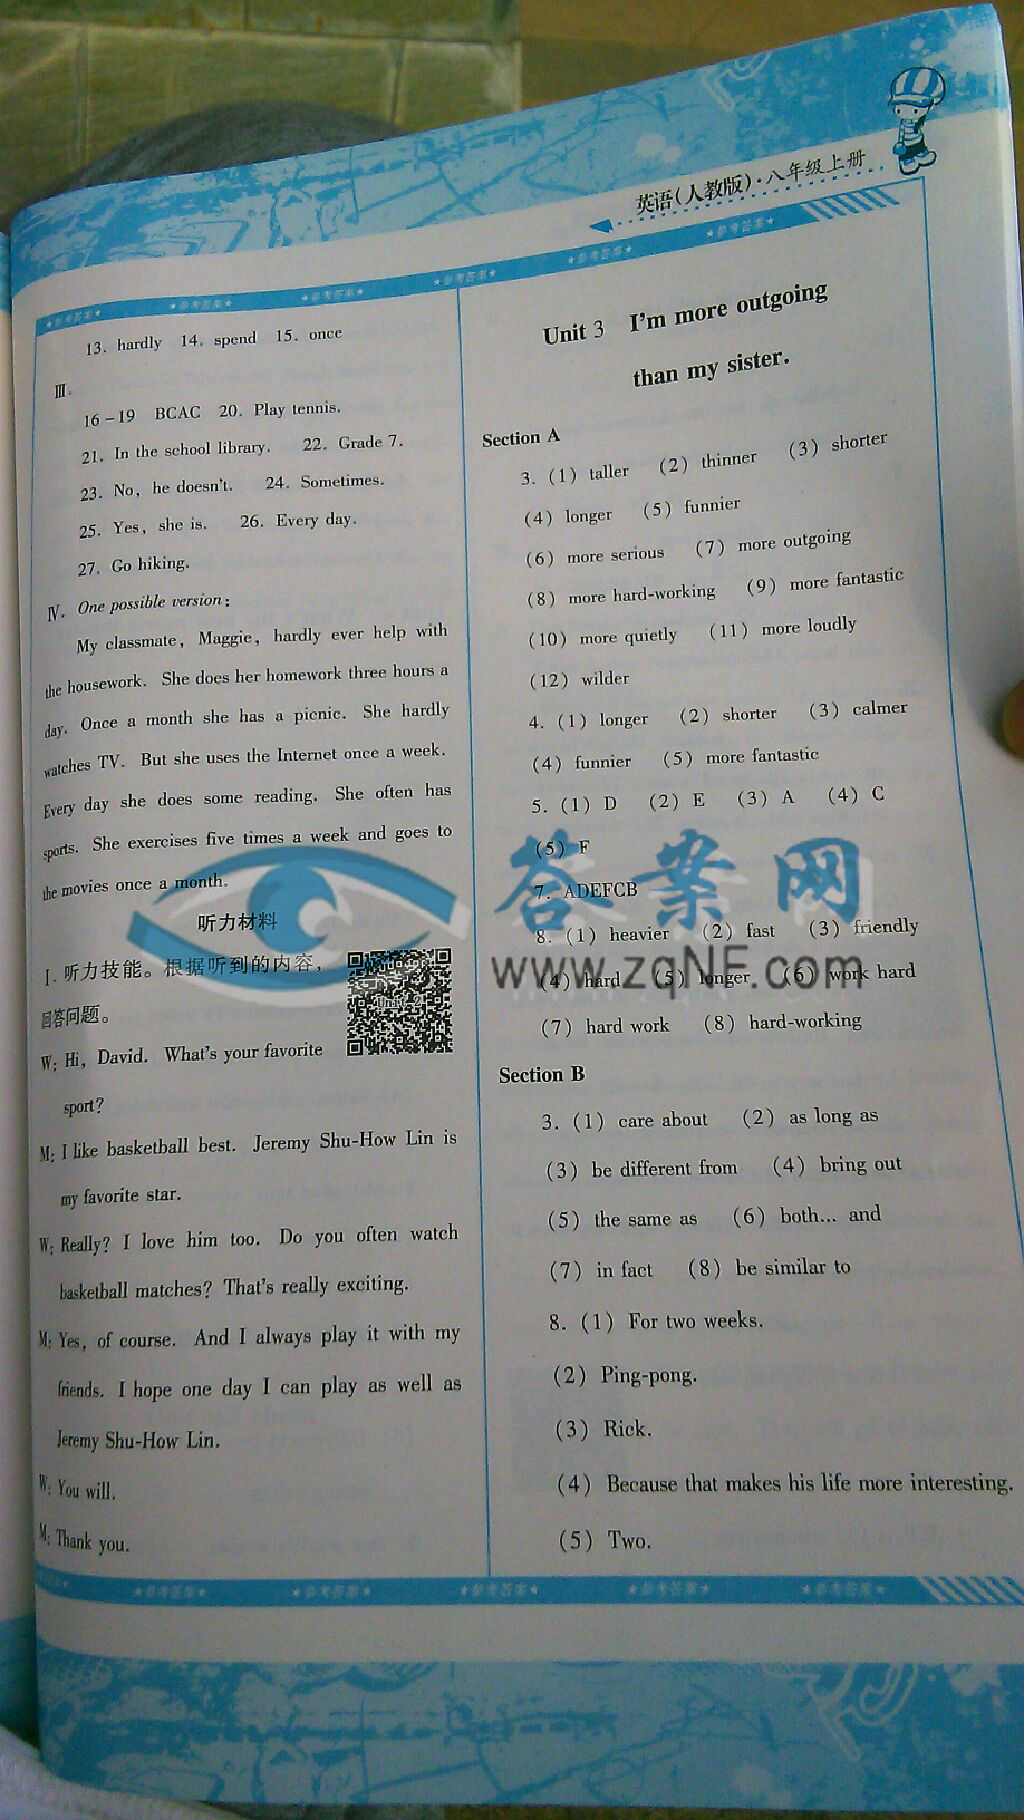 英语(人教版)·八年级上册
★参考答案★ ★参考答案★ ★参考答案★ ★参考答案★ ★参考答案★ ★参考答案★
13. hardly 14. spend 15. once
Ⅲ.
16-19 BCAC 20. Play tennis.
21. In the school library. 22. Grade 7.
23. No, he doesn't. 24. Sometimes.
25. Yes, she is. 26. Every day.
27. Go hiking.
Ⅳ. One possible version:
My classmate, Maggie, hardly ever help with
the housework. She does her homework three hours a
day. Once a month she has a picnic. She hardly
watches TV. But she uses the Internet once a week.
Every day she does some reading. She often has
sports. She exercises five times a week and goes to
the movies once a month.
听力材料
Ⅰ.听力技能。根据听到的内容,
回答问题。
Unit 2
W: Hi, David. What's your favorite
sport?
M: I like basketball best. Jeremy Shu-How Lin is
my favorite star.
W: Really? I love him too. Do you often watch
basketball matches? That's really exciting.
M: Yes, of course. And I always play it with my
friends. I hope one day I can play as well as
Jeremy Shu-How Lin.
W: You will.
M: Thank you.
Unit 3 I'm more outgoing
than my sister.
Section A
3. (1) taller (2) thinner (3) shorter
(4) longer (5) funnier
(6) more serious (7) more outgoing
(8) more hard-working (9) more fantastic
(10) more quietly (11) more loudly
(12) wilder
4. (1) longer (2) shorter (3) calmer
(4) funnier (5) more fantastic
5. (1) D (2) E (3) A (4) C
(5) F
7. ADEFCB
8. (1) heavier (2) fast (3) friendly
(4) hard (5) longer (6) work hard
(7) hard work (8) hard-working
Section B
3. (1) care about (2) as long as
(3) be different from (4) bring out
(5) the same as (6) both... and
(7) in fact (8) be similar to
8. (1) For two weeks.
(2) Ping-pong.
(3) Rick.
(4) Because that makes his life more interesting.
(5) Two.
答案网
www.zqNF.com
★参考答案★ ★参考答案★ ★参考答案★ ★参考答案★ ★参考答案★